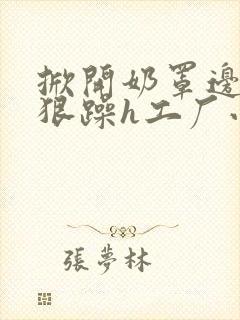 掀開奶罩邊
狠躁h工厂
張夢林